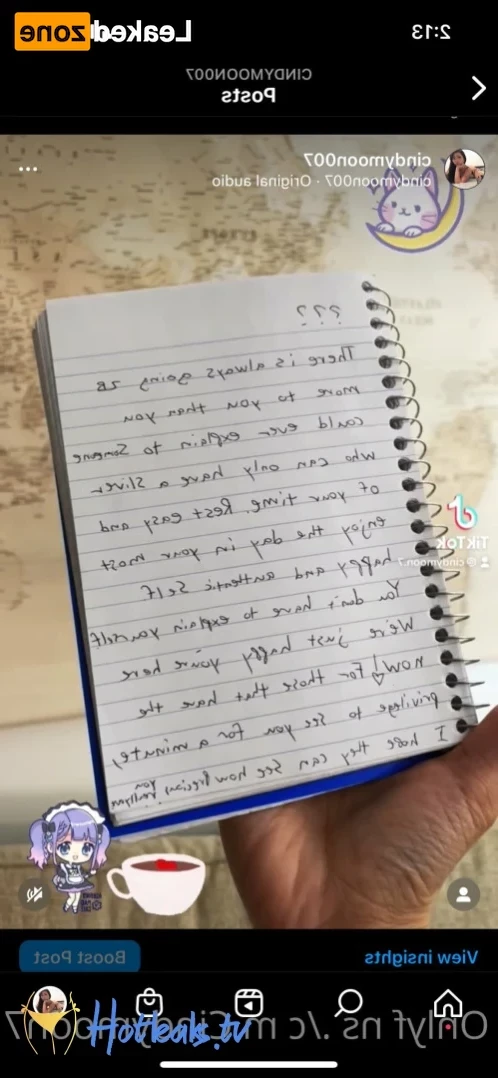 2:13
Leaked zone
CINDYMOON007
Posts
cindymoon007
cindymoon007 · Original audio
???
There is always going 2B
more to you than you
could ever explain to Someone
who can only have a Sliver
of your time. Rest easy and
enjoy the day in your most
happy and authentic Self
You don't have to explain yourself
We're just happy you're here
now! For those that have the
privilege to see you for a minute,
I hope they can see how Precious you
TikTok
cindymoon7
View insights
Boost Post
Hotleaks.tv